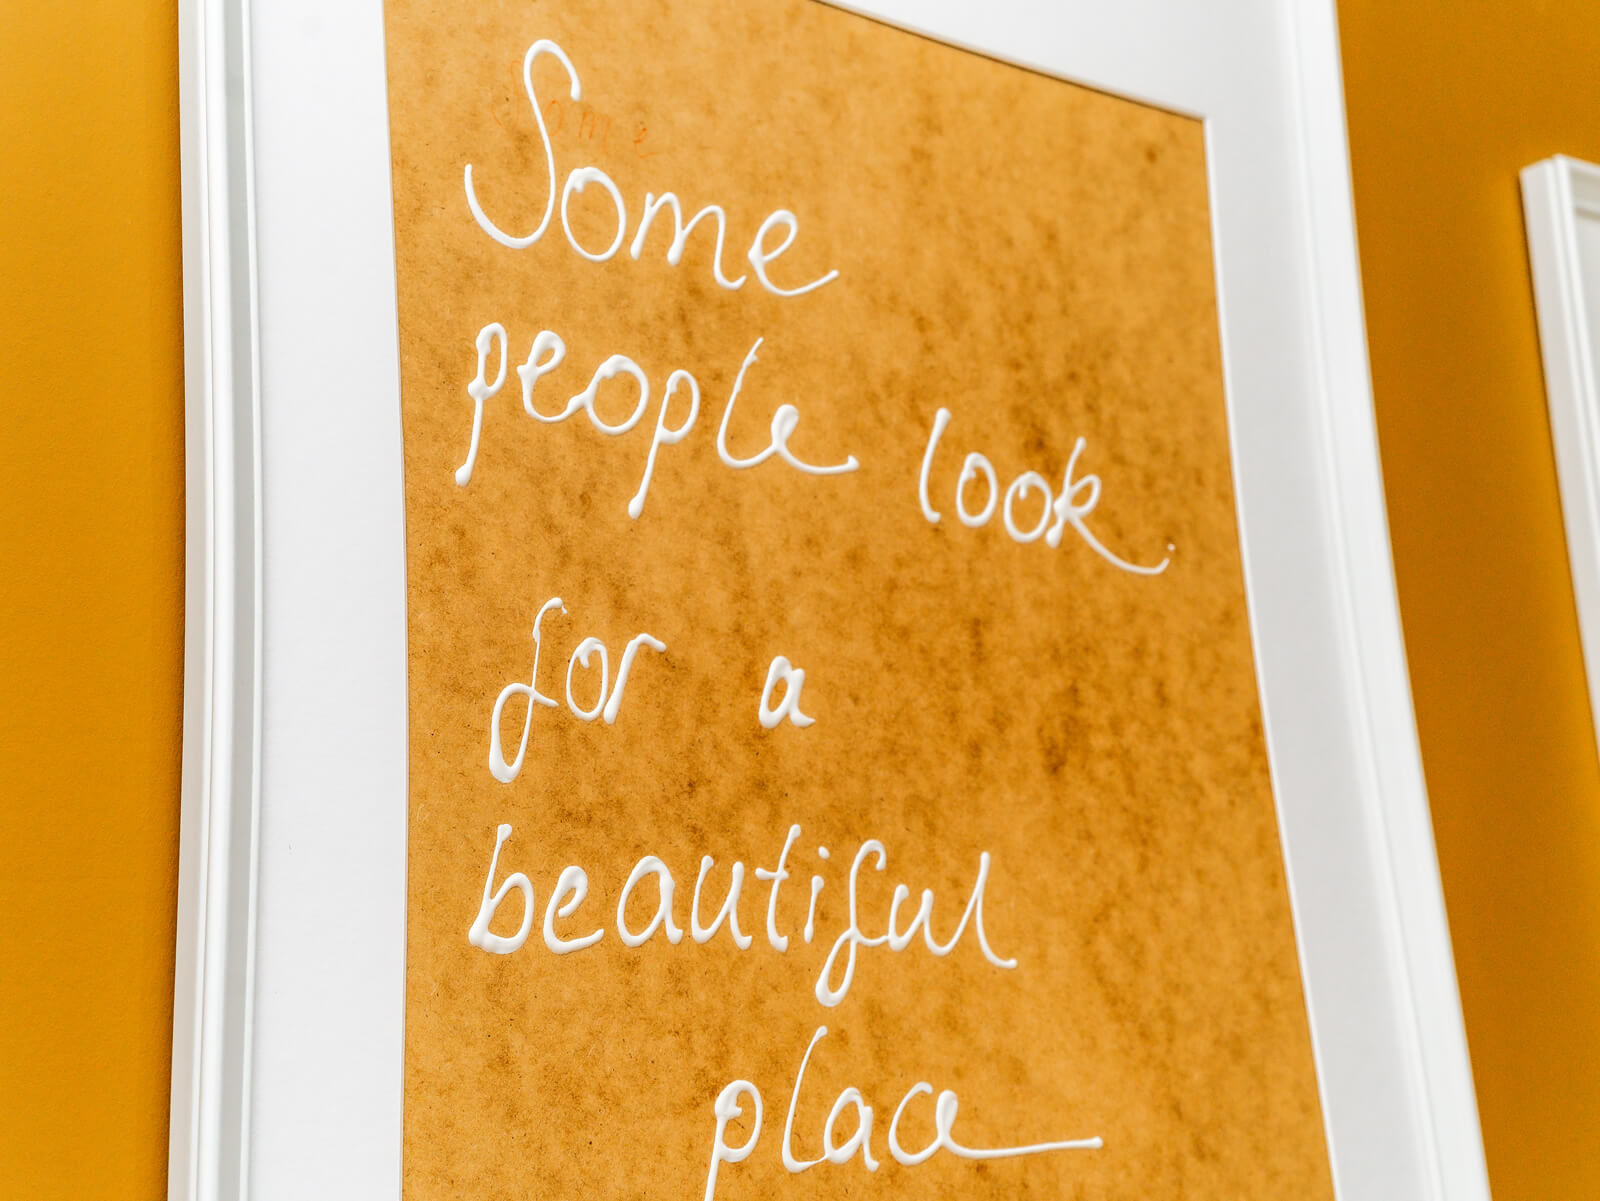 Some
people look
for a
beautiful
place